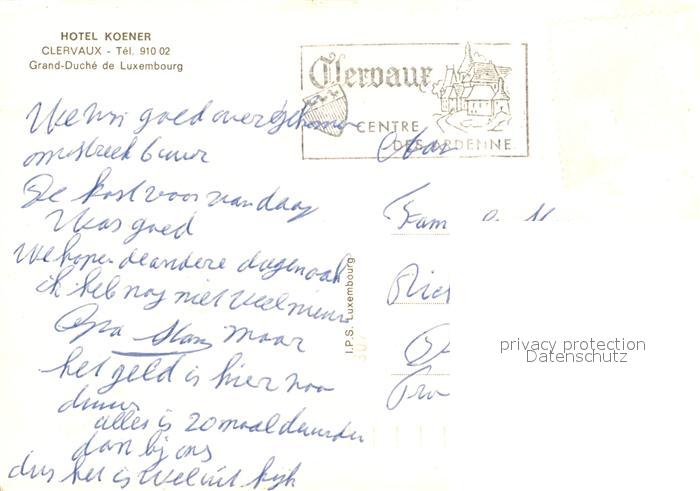 HOTEL KOENER
CLERVAUX - Tél. 910 02
Grand-Duché de Luxembourg
Clervaux
CENTRE
DES ARDENNE
We zijn goed overgekomen
omstreek 6 uur
De kost voor vandaag
Was goed
We hopen de andere dagen ook
ik heb nog niet veel nieuws
Opa maar
het geld is hier
duur
alles is 20 maal duurder
dan bij ons
dus het is wel
I.P.S. Luxembourg
Fam
privacy protection
Datenschutz